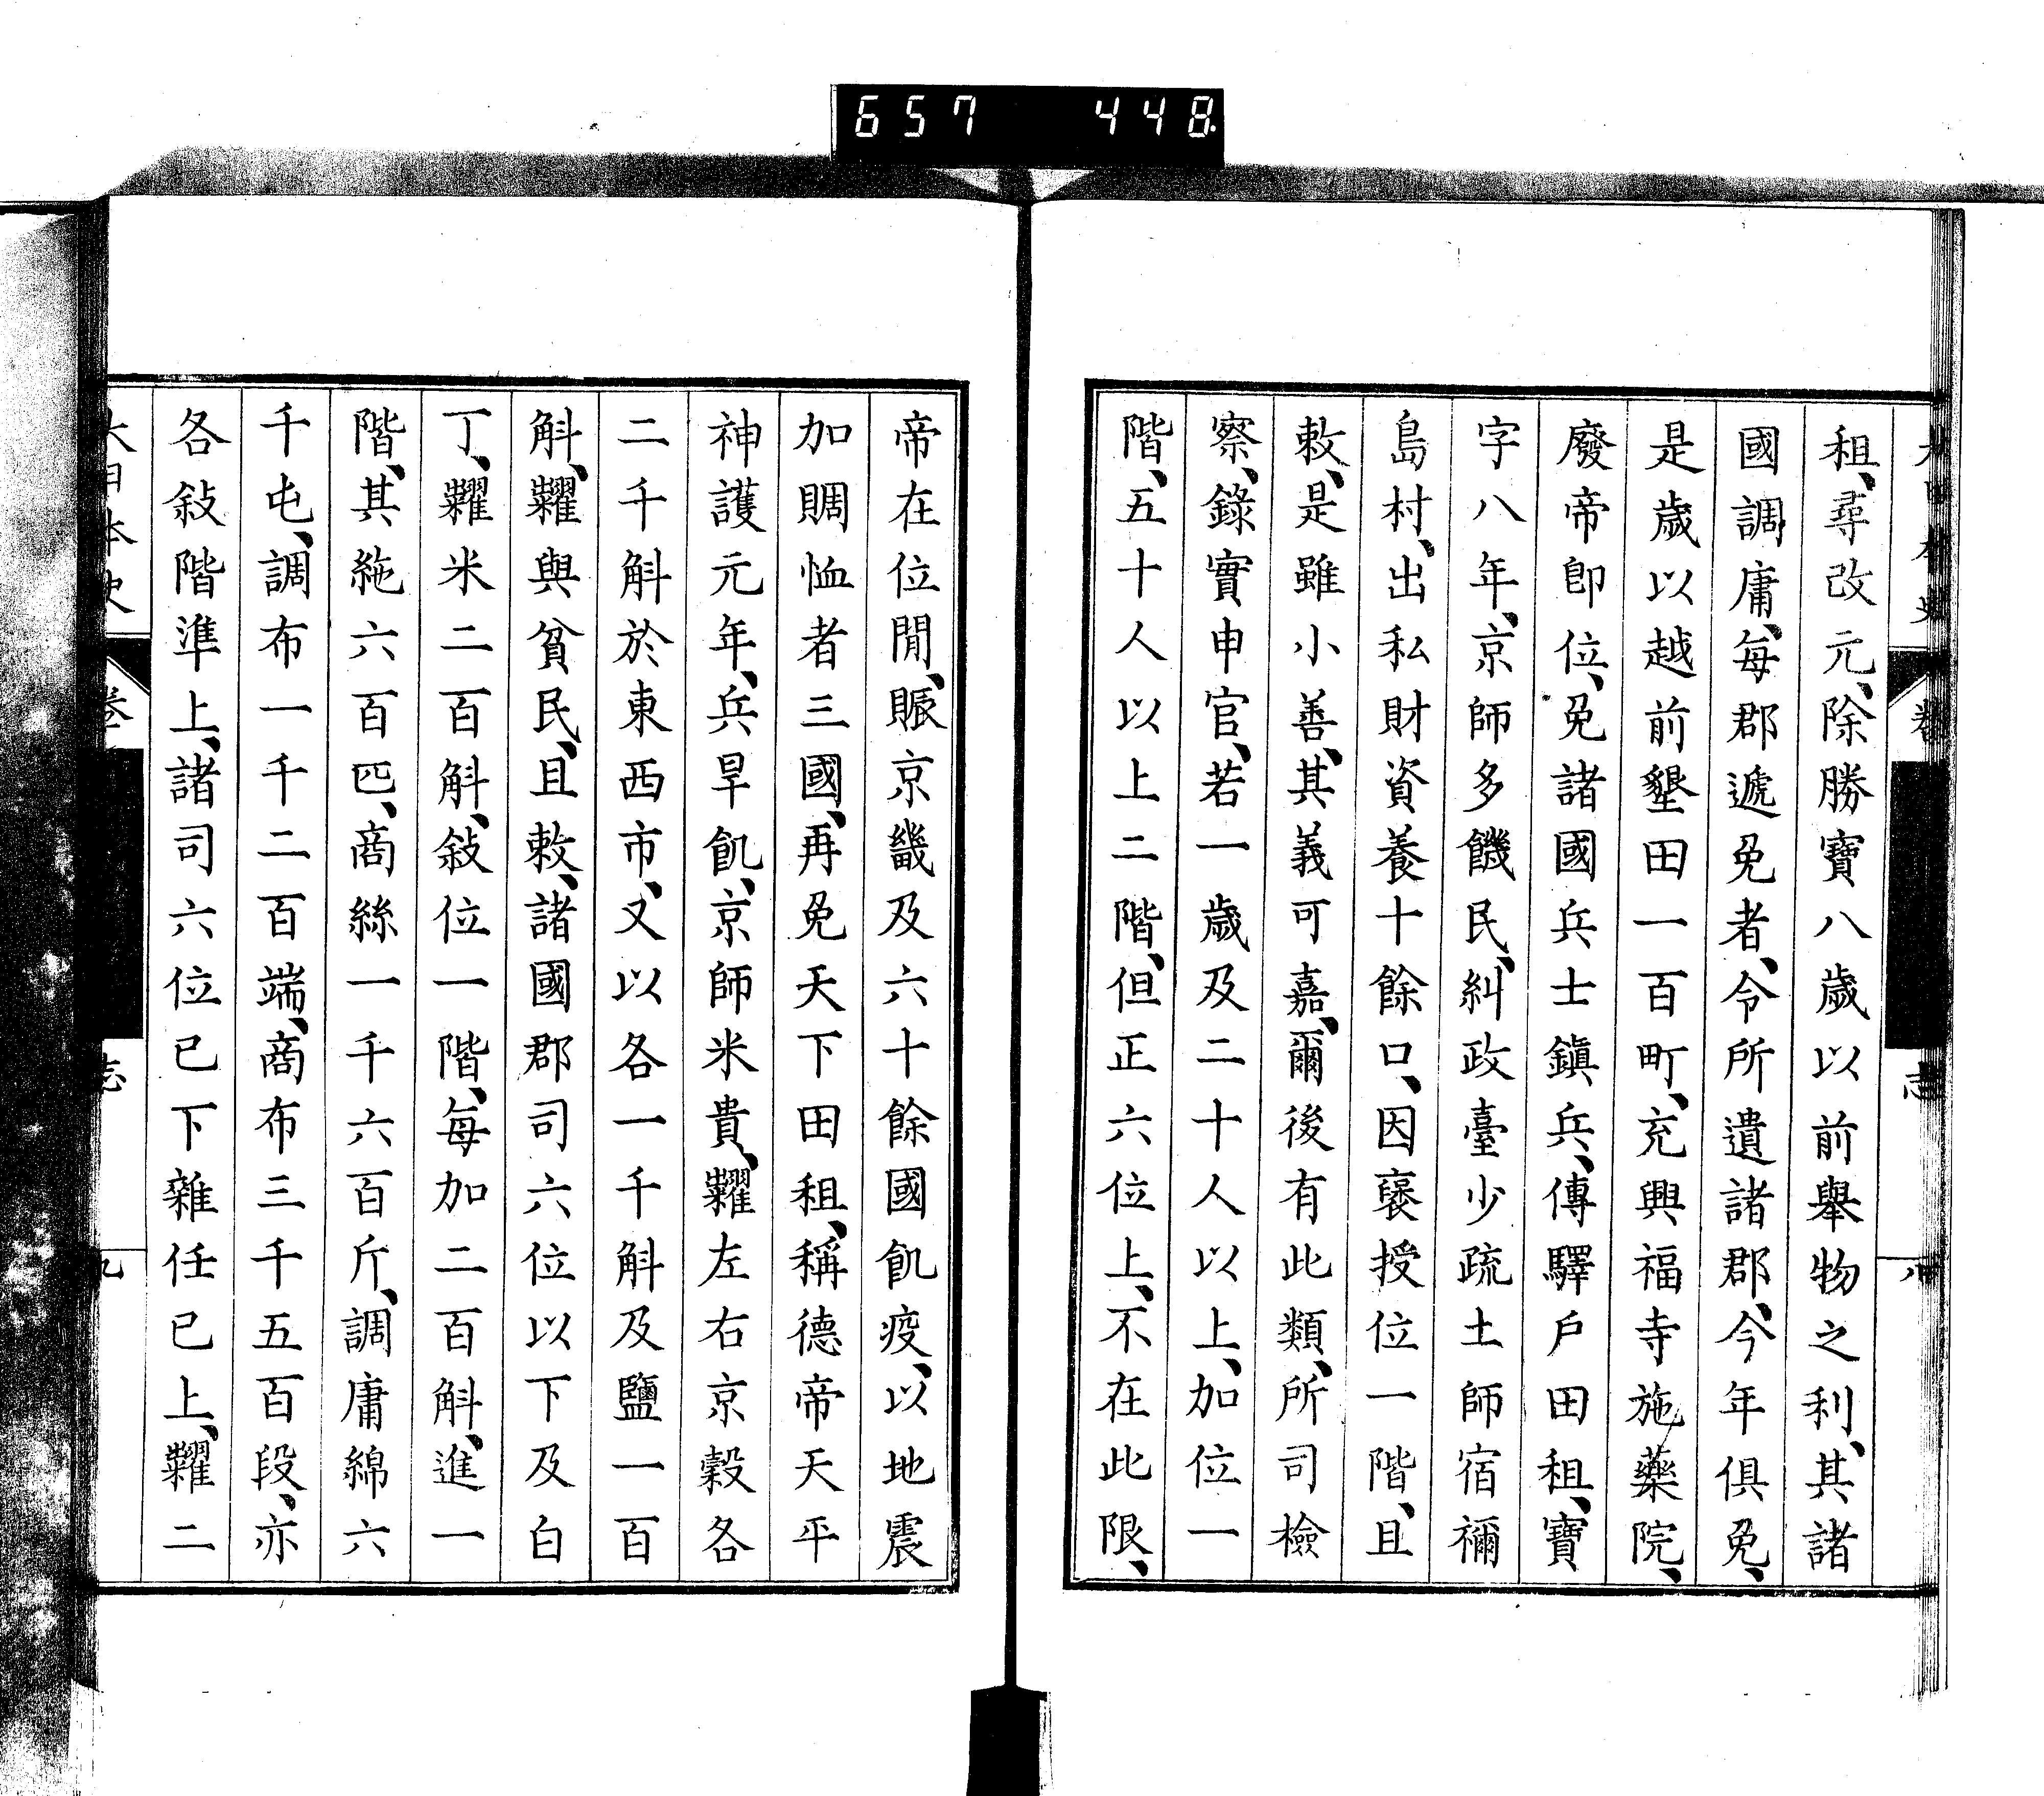 657 448
大日本史 卷 志 八
租、尋改元、除勝寶八歲以前舉物之利、其諸
國調庸、每郡遞免者、令所遺諸郡、今年俱免、
是歲以越前墾田一百町、充興福寺施藥院、
廢帝卽位、免諸國兵士鎭兵、傳驛戶田租、寶
字八年、京師多饑民、糾政臺少疏土師宿禰
島村、出私財資養十餘口、因襃授位一階、且
敕、是雖小善、其義可嘉、爾後有此類、所司檢
察、錄實申官、若一歲及二十人以上、加位一
階、五十人以上二階、但正六位上、不在此限、
帝在位閒、賑京畿及六十餘國飢疫、以地震
加賙恤者三國、再免天下田租、稱德帝天平
神護元年、兵旱飢、京師米貴、糶左右京穀各
二千斛於東西市、又以各一千斛及鹽一百
斛、糶與貧民、且敕、諸國郡司六位以下及白
丁、糶米二百斛、敍位一階、每加二百斛、進一
階、其絁六百匹、商絲一千六百斤、調庸綿六
千屯、調布一千二百端、商布三千五百段、亦
各敍階準上、諸司六位已下雜任已上、糶二
大日本史 卷 志 九